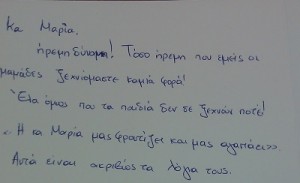 κα Μαρία,
ήρεμη δύναμη! Τόσο ήρεμη που εμείς οι
μαμάδες ξεχνιόμαστε καμιά φορά!
Έλα όμως που τα παιδιά δεν σε ξεχνάν ποτέ!
"Η κα Μαρία μας φροντίζει και μας αγαπάει".
Αυτά είναι ακριβώς τα λόγια τους.